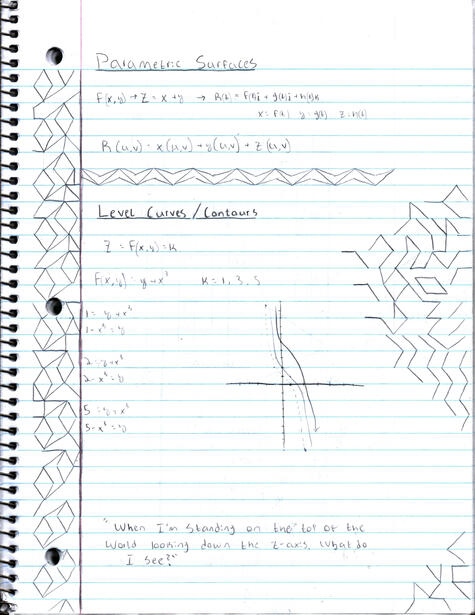 Parametric Surfaces
F(x,y) → Z = x + y → R(t) = f(t)i + g(t)j + h(t)k
x = f(t) y = g(t) z = h(t)
R(u,v) = x(u,v) + y(u,v) + z(u,v)
Level Curves/Contours
Z = F(x,y) = K
F(x,y) = y + x³ K = 1, 3, 5
1 = y + x³
1 - x³ = y
2 = y + x³
2 - x³ = y
5 = y + x³
5 - x³ = y
"When I'm standing on the top of the
world looking down the z-axis, what do
I see?"